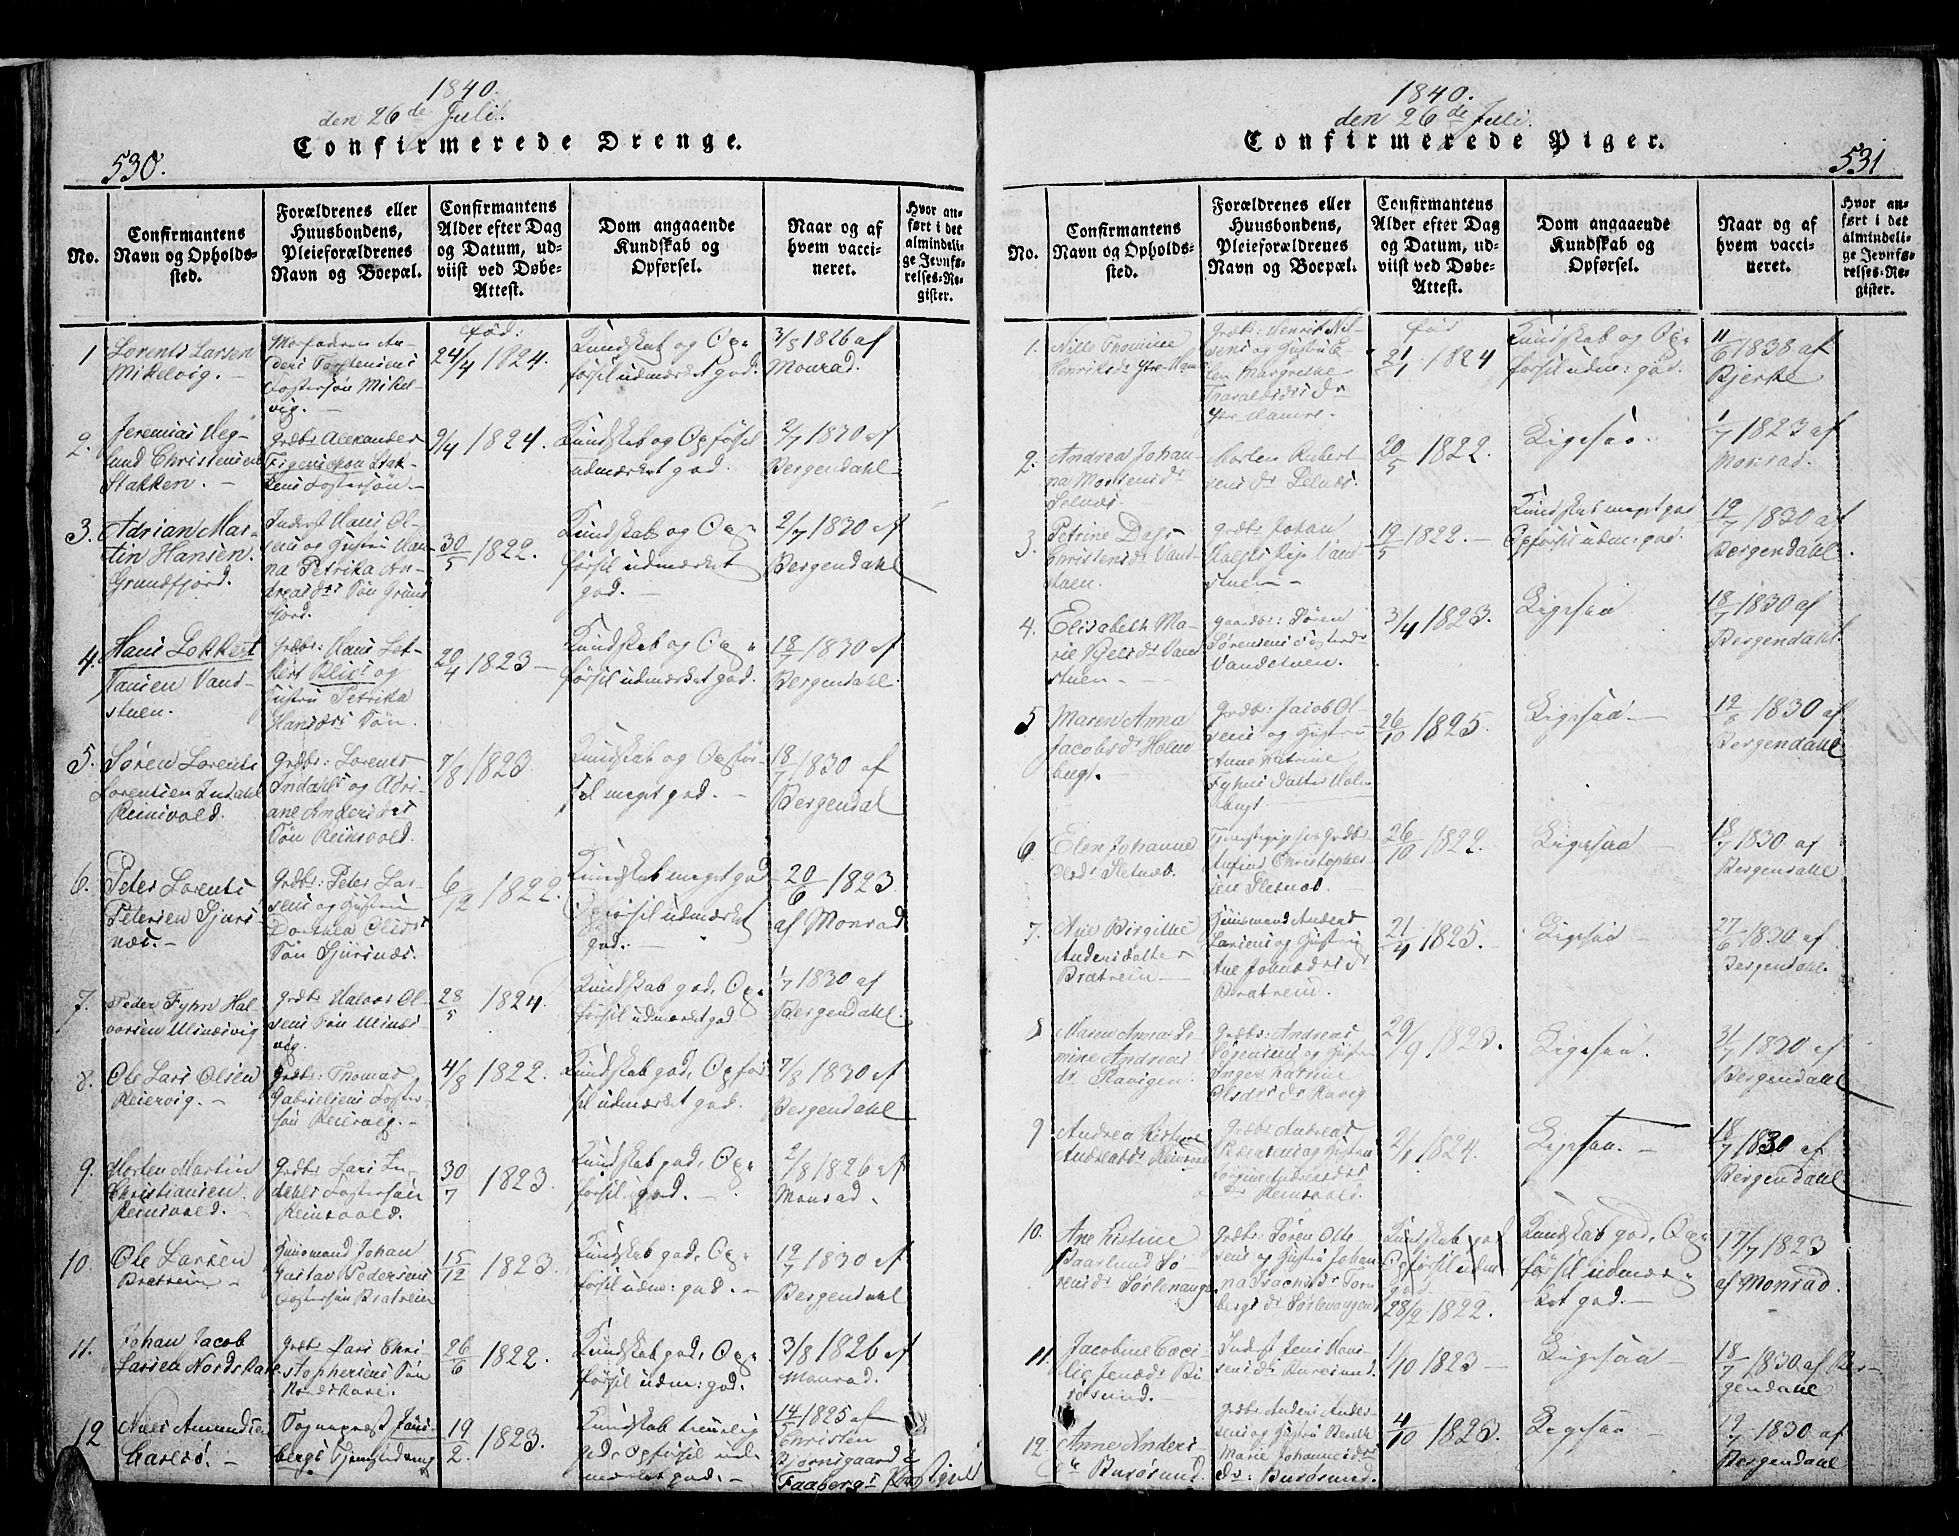 1840.
den 26de Juli.
Confirmerede Drenge.
530.
No.
Confirmantens
Navn og Opholds-
sted.
Forældrenes eller
Huusbondens,
Pleieforældrenes
Navn og Boepæl.
Confirmantens
Alder efter Dag
og Datum, ud-
viist ved Døbe-
Attest.
Dom angaaende
Kundskab og
Opførsel.
Naar og af
hvem vacci-
neret.
Hvor an-
ført i det
almindeli-
ge Jevnfø-
relses-Re-
gister.
1
Lorents Larsen
Mikelvig.
Morfaderen An-
ders
Fostersøn Mikel-
vig.
fød:
24/4 1824.
Kundskab og Op-
førsel udmærket god.
3/8 1826 af
Monrad.
2.
Jeremias Heg-
lund Christensen
Stakken.
Grdbr. Alexander
Stak-
kens Fostersøn
9/4 1824.
Kundskab og Opførsel
udmærket god.
2/7 1830 af
Bergendahl
3.
Adrian Mar-
tin Hansen
Grundfjord.
Inderst Hans Ol-
sens og Hustru Han-
na Petrika An-
dreasdrs Søn Grund
fjord.
30/5 1822.
Kundskab og Op-
førsel udmærket
god.
2/7 1830 af
Bergendahl
4.
Hans Lokkert
Hansen Vand-
stuen.
Grdbr. Hans Lok-
kert Blix og
Hustru Petrika
Hansdrs Søn.
20/4 1823
Kundskab og Op-
førsel udmærket god.
18/7 1830 af
Bergendahl.
5.
Søren Lorents
Lorentsen Indahl
Reinsvold.
Grdbr: Lorents
Indahls og Adri-
ane Andersdrs
Søn Reinsvold.
7/8 1823
Kundskab og Opfør-
sel meget god.
18/7 1830 af
Bergendal
6.
Peter Lorents
Petersen Sjurs-
næs.
Grdbr: Peter Lar-
sens og Hustru
Dorthea Olsdrs
Søn Sjursnæs.
6/12 1822.
Kundskab meget god
Opførsel udmærket
god.
20/6 1823
af Monrad
7.
Peder Fyhn Hal-
vorsen
Grdbr Halvor Ol-
sens Søn
vig.
28/5 1824.
Kundskab god, Op-
førsel udmærket god
1/7 1830 af
Bergendahl.
8.
Ole Lars Olsen
Reiervig.
Grdbr: Thomas
Gabrielsens Foster-
søn Reiervig.
4/8 1822.
Kundskab god, Opfør
sel udmærket god.
7/8 1830 af
Bergendahl
9.
Morten Martin
Christiansen
Reinsvold.
Grdbr Lars In-
dahls Fostersøn
Reinsvold.
30/7 1823.
Kundskab god, Op-
førsel god.
2/8 1826 af
Monrad.
10.
Ole Larsen
Bratrein
Huusmand Johan
Gustav Pedersens
Fostersøn Bratrein
15/12 1823.
Kundskab god, Op-
førsel udm: god.
12/7 1830 af
Bergendahl
11.
Johan Jacob
Larsen Nordskare
Grdbr Lars Chri-
stophersens Søn
Nordskare.
26/6 1822.
Kundskab god, Op-
førsel udm: god.
3/8 1826 af
Monrad.
12
Niels Amundsen
Carlsø.
Sogneprest Jens-
bergs Tjenestedreng
19/2 1823.
Kundskab temmelig
god, Opførsel ud-
mærket god.
14/5 1825 af
Christen
Bjørnsgaard
Faabergs Præstgield
1840.
den 26de Juli.
Confirmerede Piger.
531
No.
Confirmantens
Navn og Opholds-
sted.
Forældrenes eller
Huusbondens,
Pleieforældrenes
Navn og Boepæl.
Confirmantens
Alder efter Dag
og Datum, ud-
viist ved Døbe-
Attest.
Dom angaaende
Kundskab og
Opførsel.
Naar og af
hvem vacci-
neret.
Hvor an-
ført i det
almindeli-
ge Jevnfø-
relses-Re-
gister.
1.
Nille Thomine
Henriksdr Ytre-Ham
Grdbr: Henrik Nil-
sens og Hustru E-
len Margrethe
Tharaldsdrs dr
Ytre Hamre.
fød
21/1 1824
Kundskab og Op-
førsel udm: god.
11/6 1838 af
Bjerke
2.
Andrea Johan-
na Mortensdr
Selnæs
Morten Rubert
sens dr Selnæs.
20/5 1822.
Ligesaa.
1/7 1823 af
Monrad.
3.
Petrine Dass
Christensdr Vand
stuen.
Grdbr Johan
Vand
stuen
19/5 1822.
Kundskab meget god
Opførsel udm: god.
12/7 1830 af
Bergendahl.
4.
Elisabeth Ma-
rie Vand
stuen
Gaardbr: Søren
Sørensens Fosterdr
Vandstuen.
3/4 1823.
Ligesaa
18/7 1830 af
Bergendahl.
5
Maren Anna
Jacobsdr Holm
bugt.
Grdbr: Jacob Ol-
sens og Hustru
Anne Katrine
Fyhns datter Holm
bugt
26/10 1825.
Ligesaa
12/8 1830 af
Bergendahl
6
Elen Johanne
Olsdr Sletnæs.
Grdbr
Anfind Christopher-
sens Sletnæs.
26/10 1822.
Ligesaa
18/7 1830 af
Bergendahl
7.
Ane Birgitte
Andersdatter
Bratrein
Huusmand Anders
Larsens og Hustru
Ane Johnsdrs dr
Bratrein.
21/4 1825.
Ligesaa
27/6 1830 af
Bergendahl.
8
Maren Anna Pe-
mine Andreas
dr Ravigen.
Grdbr: Andreas
og Hustru
Inger Katrine
Olsdrs dr Ravig
29/9 1823.
Ligesaa.
31/7 1830 af
Bergendahl
9
Andrea Kistine
Andreasdr Reinsvold
Grdbr Andreas
og Hustru
Andreasdrs
dr Reinsvold.
2/1 1824.
Ligesaa.
18/7 1830 af
Bergendahl
10.
Ane Kistine
Baarlund Sø-
rensdr Sørlenangen
Grdbr: Søren Ole
sens og Hustru Johan
na
bergs dr Sørlenangen
Kundskab god
Opførsel udm
god
28/2 1822.
Kundskab god, Op-
førsel udmær-
ket god.
17/7 1823
af Monrad.
11.
Jacobine Ceci-
lie Jensdr Bu
røsund.
Inderst Jens Han-
sens dr Burøsund.
1/10 1823
Ligesaa
18/7 1830 af Ber-
gendahl
12.
Anne Anders
dr Burøsund.
Grdbr Anders Ander-
sens og Hustru
Marie Johannesdrs
dr: Burøsund.
4/10 1823.
Ligesaa
12/7 1830 af
Bergendahl